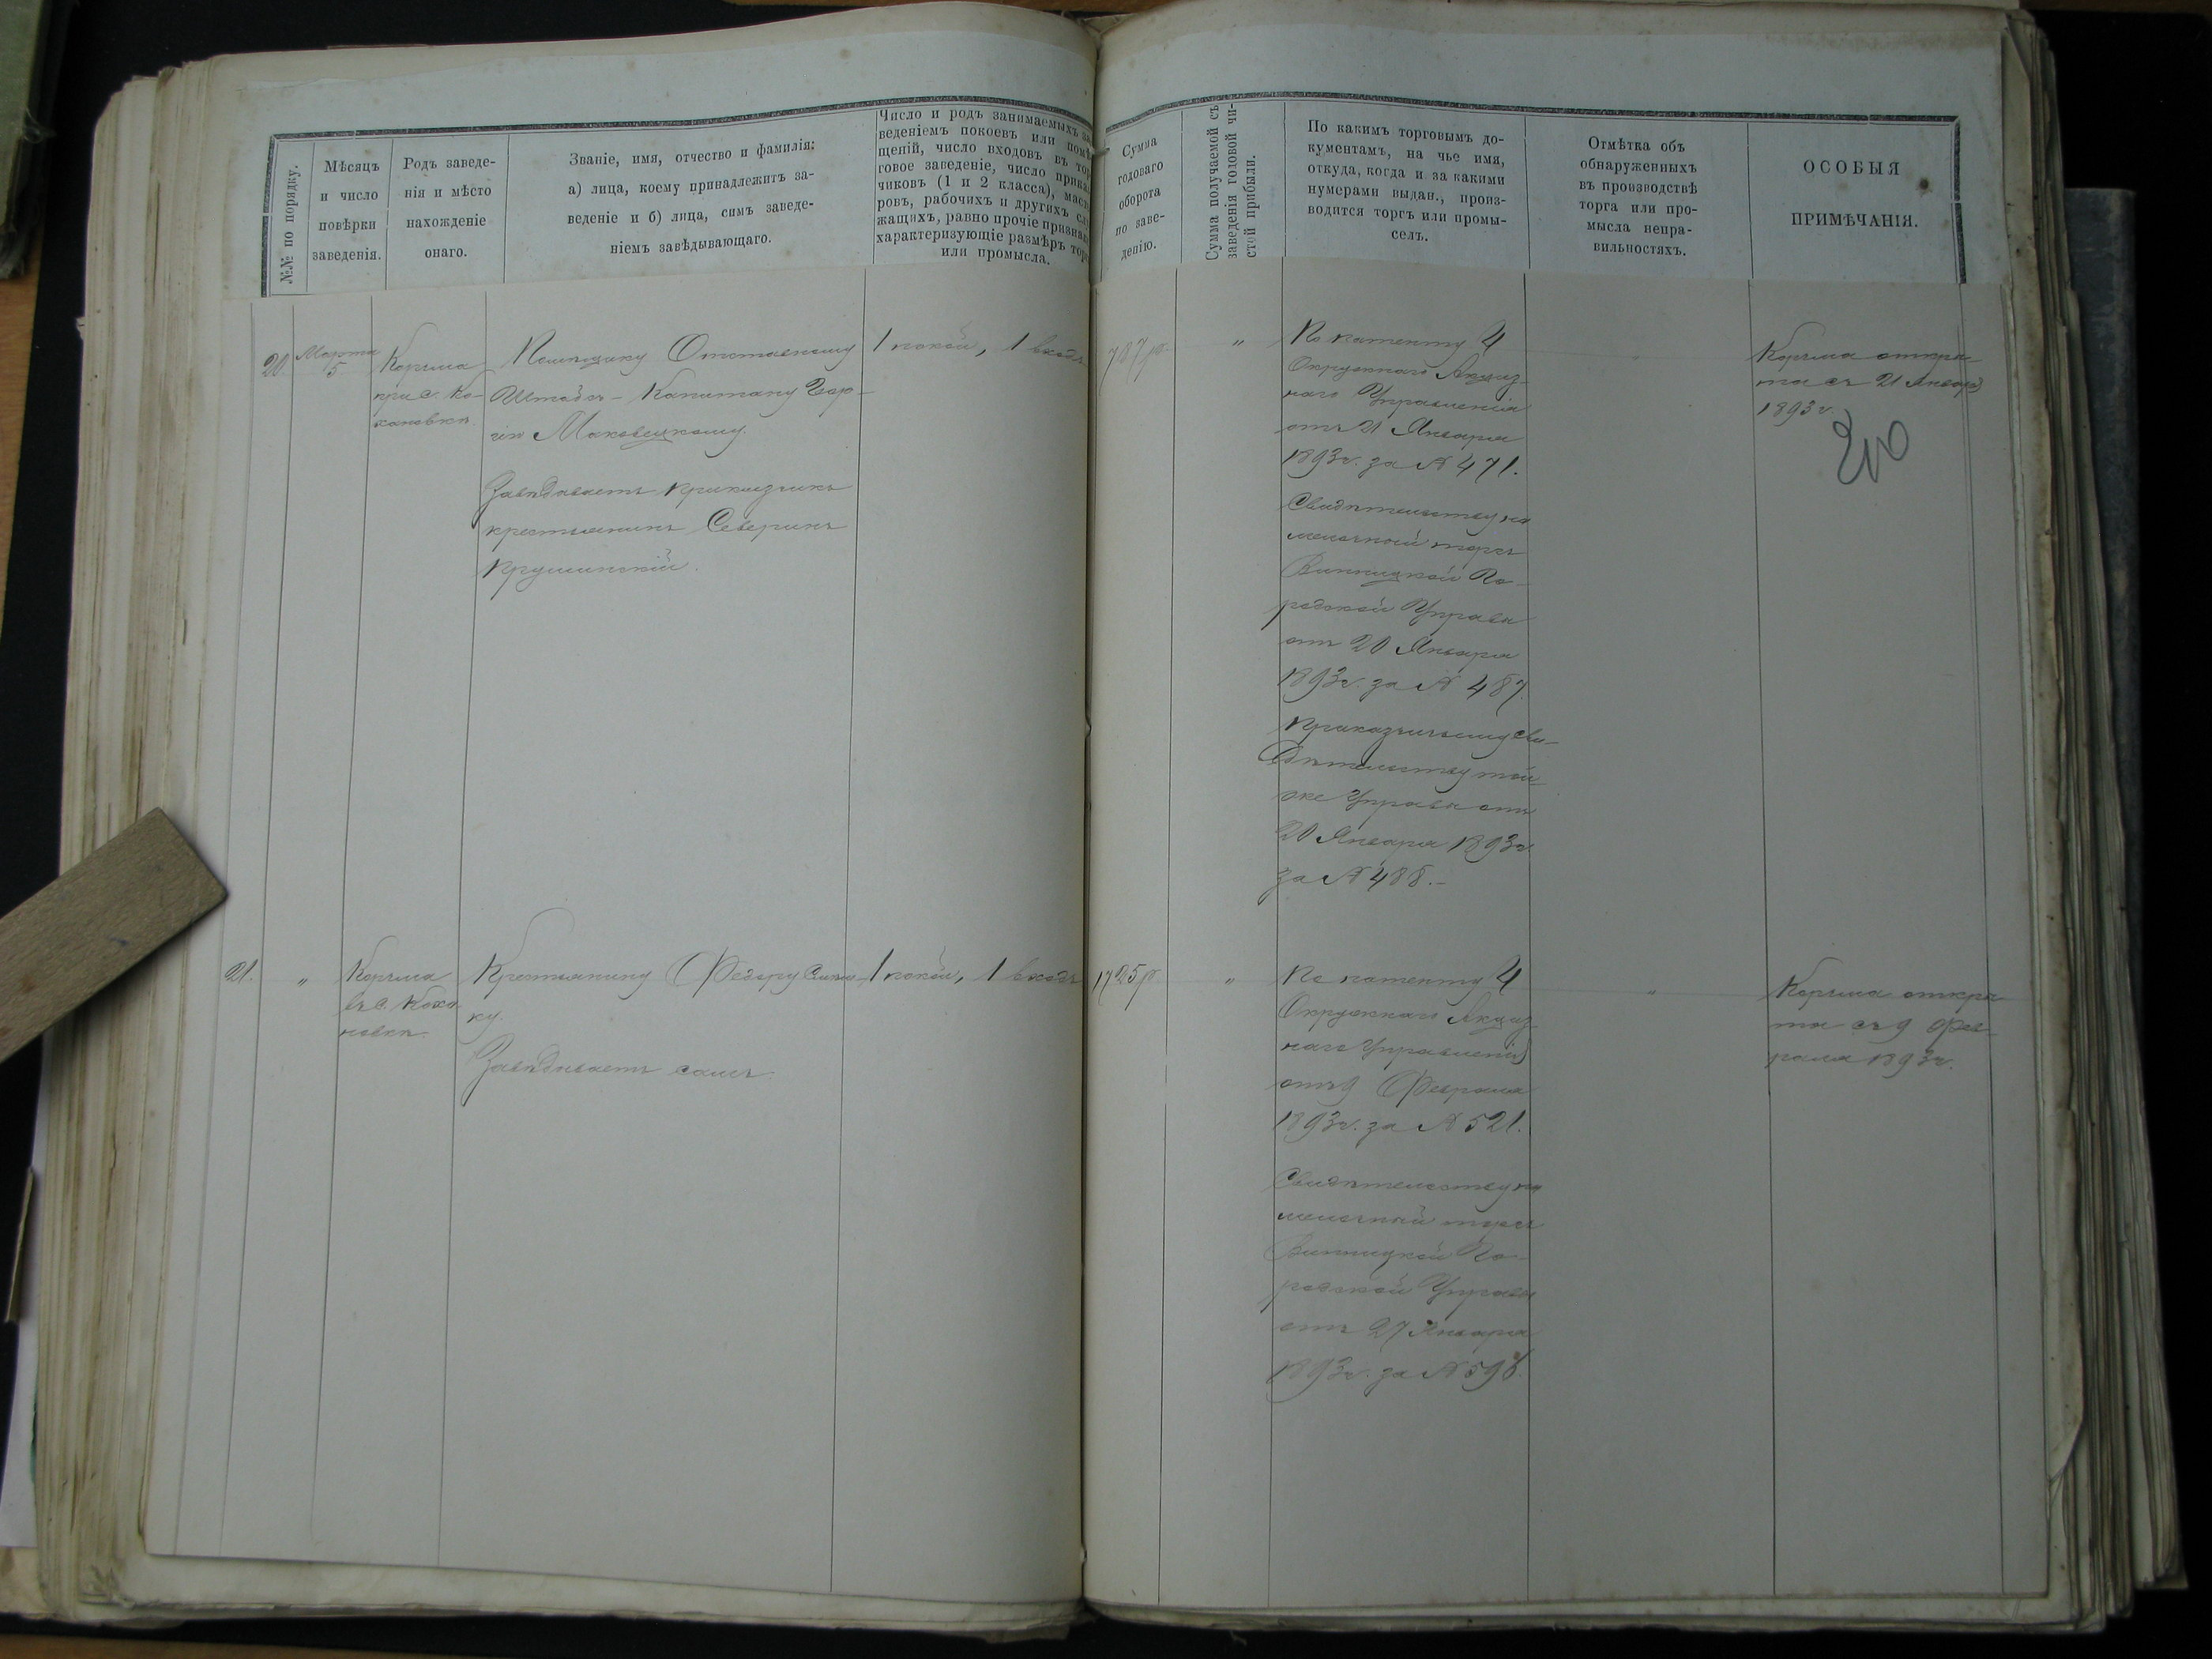 №№ по порядку.
Мѣсяцъ
и число
повѣрки
заведенія.
Родъ заведе-
нія и мѣсто
нахожденіе
онаго.
Званіе, имя, отчество и фамилія:
а) лица, коему принадлежитъ за-
веденіе и б) лица, симъ заведе-
ніемъ завѣдывающаго.
Число и родъ занимаемыхъ за
веденіемъ покоевъ или помѣ
щеній, число входовъ въ тор
говое заведеніе, число прика
чиковъ (1 и 2 класса), масте
ровъ, рабочихъ и другихъ слу
жащихъ, равно прочіе признаки
характеризующіе размѣръ торг
или промысла.
Сумма
годоваго
оборота
по заве-
денію.
Сумма получаемой съ
заведенія годовой чи-
стой прибыли.
По какимъ торговымъ до-
кументамъ, на чье имя,
откуда, когда и за какими
нумерами выдан., произ-
водится торгъ или промы-
селъ.
Отмѣтка объ
обнаруженныхъ
въ производствѣ
торга или про-
мысла непра-
вильностяхъ.
ОСОБЫЯ
ПРИМѢЧАНІЯ.
20.
Марта
5
Корчма
при с. Ко-
хановкѣ
Помѣщику Отставному
Штабсъ-Капитану Геор-
гію Маковецкому.
Завѣдываетъ приказчикъ
крестьянинъ Северинъ
Крушинскій.
1 покой, 1 входъ
787 р.
"
По патенту 4
Окружнаго Акциз-
наго Управленія
отъ 21 Января
1893 г. за № 471.
Свидѣтельству на
мелочной торгъ
Винницкой Го-
родской Управы
отъ 20 Января
1893 г. за № 487.
Приказчичьему сви-
дѣтельству той
же Управы отъ
20 Января 1893 г.
за № 488.-
Корчма откры
та съ 21 Января
1893 г.
21.
"
Корчма
въ с. Коха
новкѣ.
Крестьянину Федору
ку.
Завѣдываетъ самъ.
1 покой, 1 входъ
1725 р
"
По патенту 4
Окружнаго Акциз
наго Управленія
отъ 9 Февраля
1893 г. за № 521.
Свидѣтельству на
мелочный торгъ
Винницкой Го-
родской Управы
отъ 27 Января
1893 г. за № 596.
"
Корчма откры
та съ 9 Фев-
раля 1893 г.